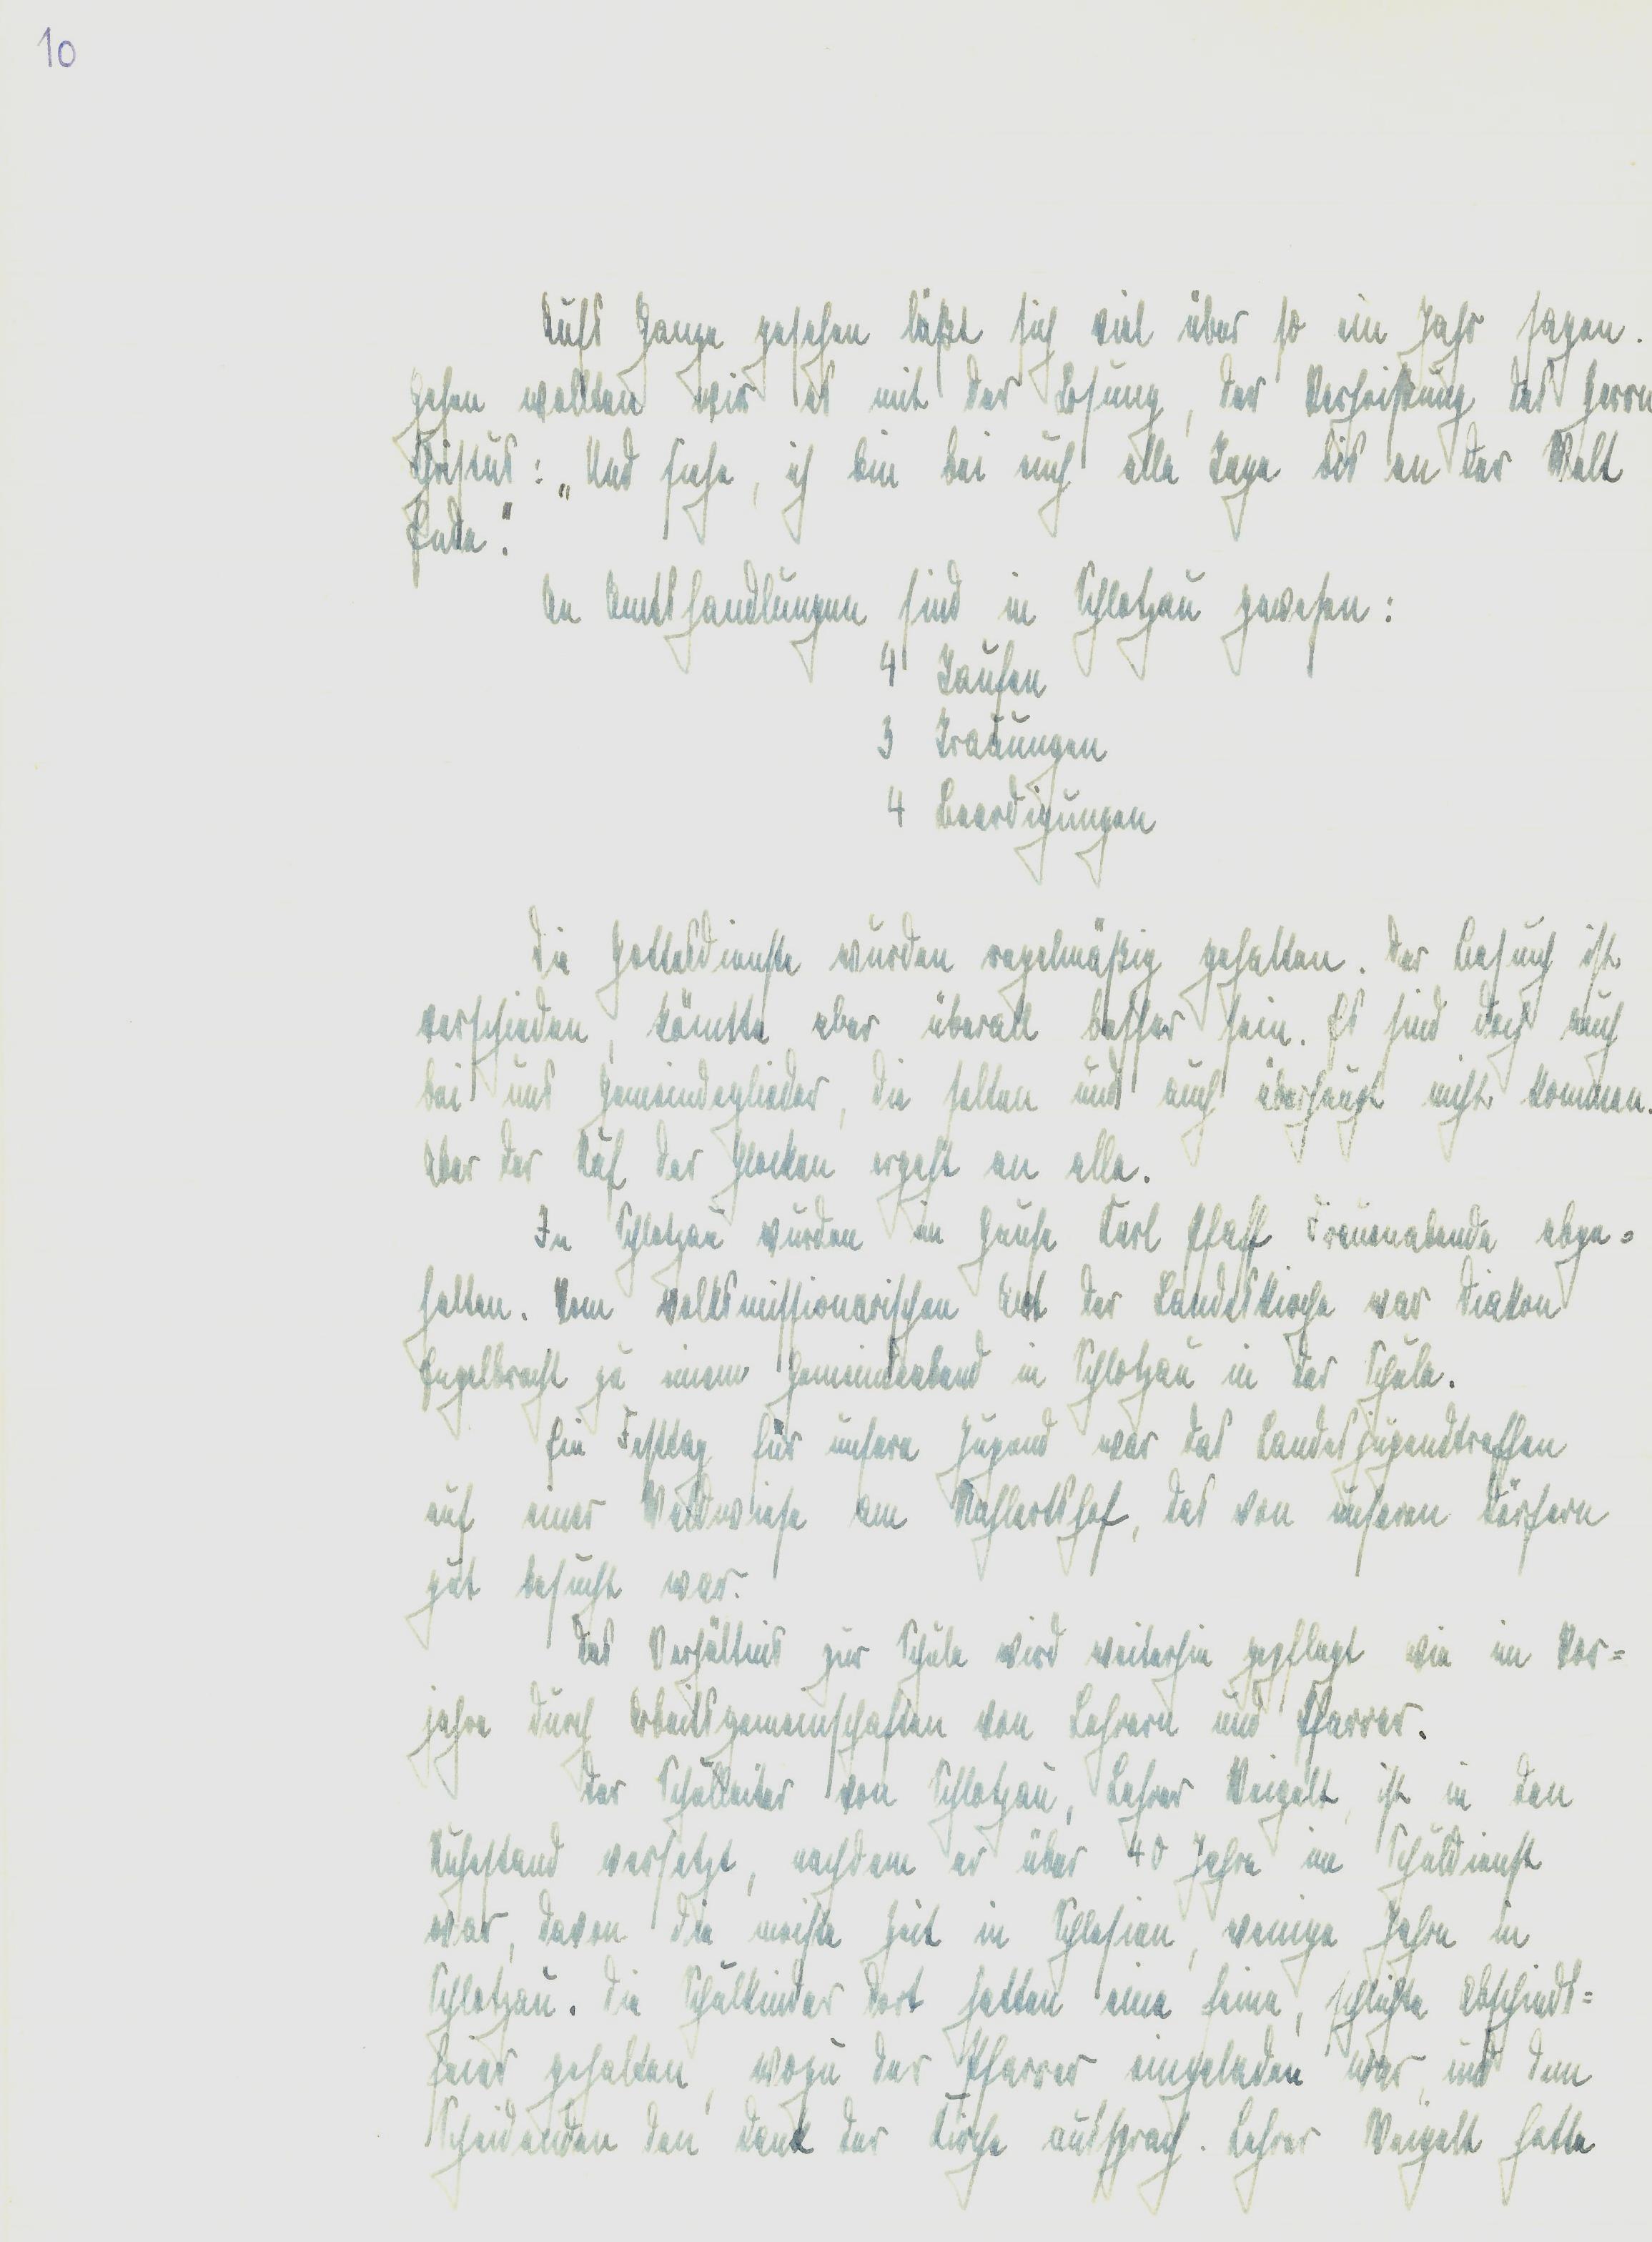 10
Aufs Ganze gesehen läßt sich viel über so ein Jahr sagen.
Gehen wollten wir es mit der Losung, der Verheißung des Herrn
Christus: „Und siehe, ich bin bei euch alle Tage bis an der Welt
Ende."
An Amtshandlungen sind in Schlotzau gewesen:
4 Taufen
3 Trauungen
4 Beerdigungen
Die Gottesdienste wurden regelmäßig gehalten. Der Besuch ist
verschieden, könnte aber überall besser sein. Es sind doch auch
bei uns Gemeindeglieder, die selten und auch überhaupt nicht kommen.
Aber der Ruf der Glocken ergeht an alle.
In Schlotzau wurden im Hause Karl Pfaff Frauenabende abge=
halten. Vom volksmissionarischen Amt der Landeskirche war Diakon
Engelbracht zu einem Gemeindeabend in Schlotzau in der Schule.
Ein Festtag für unsere Jugend war das Landesjugendtreffen
auf einer Waldwiese am Mahlertshof, das von unseren Dörfern
gut besucht war.
Das Verhältnis zur Schule wird weiterhin gepflegt wie im Vor=
jahre durch Arbeitsgemeinschaften von Lehrern und Pfarrer.
Der Schulleiter von Schlotzau, Lehrer Weigelt, ist in den
Ruhestand versetzt, nachdem er über 40 Jahre im Schuldienst
war, davon die meiste Zeit in Schlesien, wenige Jahre in
Schlotzau. Die Schulkinder dort hatten eine feine, schlichte Abschieds=
feier gehalten, wozu der Pfarrer eingeladen war und dem
Scheidenden den Dank der Kirche aussprach. Lehrer Weigelt hatte